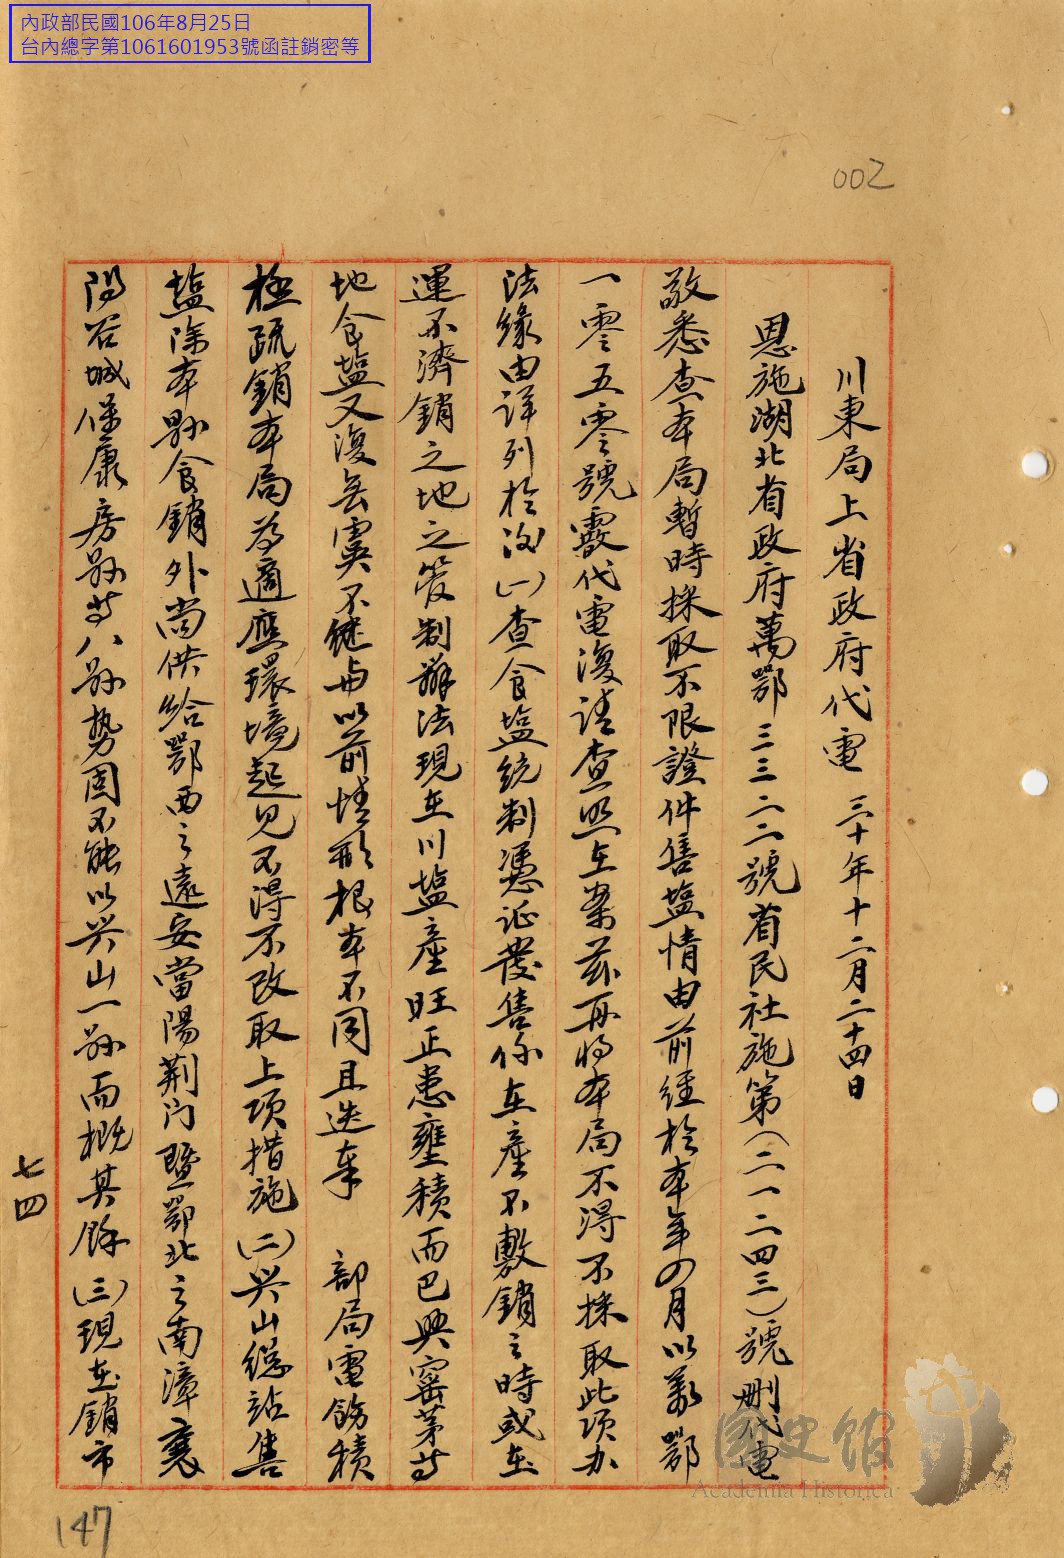 內政部民國106年8月25日
台內總字第1061601953號函註銷密等
002
川東局上省政府代電 三十年十二月二十四日
恩施湖北省政府萬鄂三三二二號省民社施第(二一二四三)號删代電
敬悉查本局暫時採取不限證件售塩情由前經於本年四月以萬鄂
一零五零號霰代電復請查照在案茲再將本局不得不採取此項办
法緣由詳列於次(一)查食塩統制憑証發售係在產不敷銷之時或在
運不濟銷之地之管制辦法現在川塩產旺正患壅積而巴興窰茅等
地食塩又復無虞不継與以前情形根本不同且迭奉 部局電飭積
極疏銷本局為適應環境起見不得不改取上項措施(二)兴山總站售
塩除本縣食銷外尚供給鄂西之遠安當陽荆门暨鄂北之南漳襄
陽谷城保康房縣等八縣勢固不能以兴山一縣而概其餘(三)現在銷市
七四
147
國史館
Academia Historica